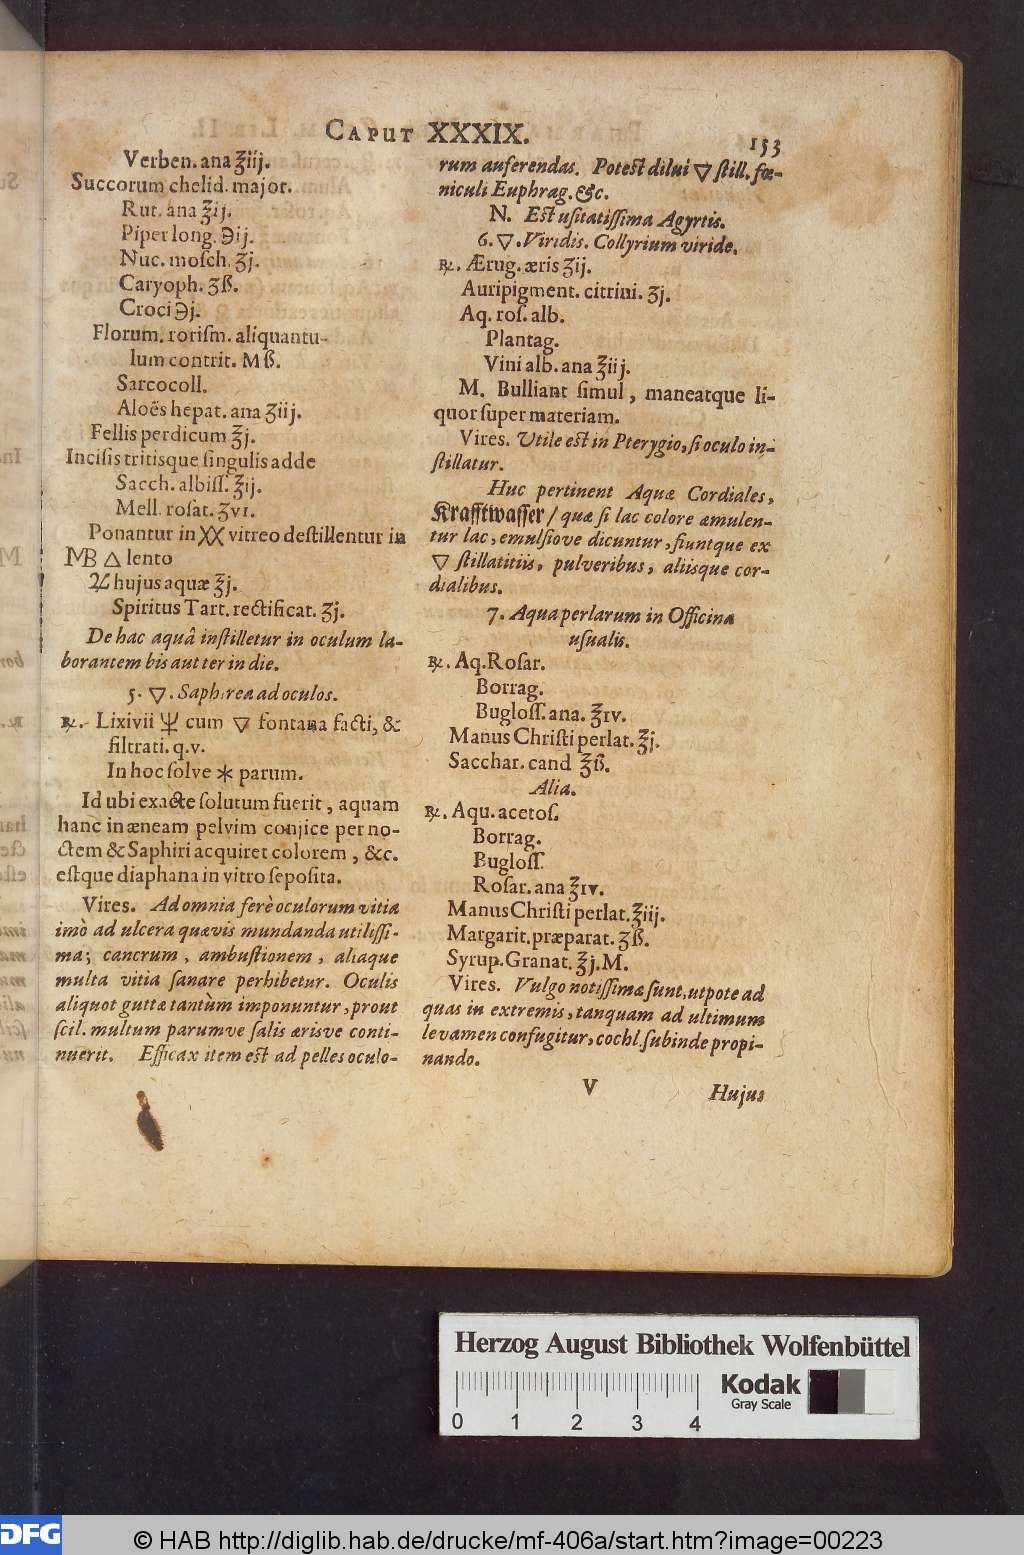 CAPUT XXXIX.
153
Verben. ana ℥iij.
Succorum chelid. major.
Rut. ana ℥ij.
Piper long. ℈ij.
Nuc. moſch. ʒj.
Caryoph. ʒß.
Croci ℈j.
Florum. roriſm. aliquantu-
lum contrit. Mß.
Sarcocoll.
Aloës hepat. ana ʒiij.
Fellis perdicum ℥j.
Inciſis tritisque ſingulis adde
Sacch. albiſſ. ℥ij.
Mell. roſat. ʒvı.
Ponantur in XX vitreo deſtillentur in
MB △ lento
♃ hujus aquæ ℥j.
Spiritus Tart. rectificat. ʒj.
De hac aquâ inſtilletur in oculum la-
borantem bis aut ter in die.
5. ▽. Saphirea ad oculos.
℞. Lixivii 🜜 cum ▽ fontana facti, &
filtrati. q.v.
In hoc ſolve ✶ parum.
Id ubi exacte ſolutum fuerit, aquam
hanc in æneam pelvim conjice per no-
ctem & Saphiri acquiret colorem, &c.
eſtque diaphana in vitro ſepoſita.
Vires. Ad omnia ferè oculorum vitia
imò ad ulcera quævis mundanda utiliſſi-
ma; cancrum, ambuſtionem, aliaque
multa vitia ſanare perhibetur. Oculis
aliquot guttæ tantùm imponuntur, prout
ſcil. multum parumve ſalis ærisve conti-
nuerit. Efficax item eſt ad pelles oculo-
rum auferendas. Poteſt dilui ▽ ſtill. fœ-
niculi Euphrag. &c.
N. Eſt uſitatiſſima Agyrtis.
6. ▽. Viridis. Collyrium viride.
℞. Ærug. æris ʒij.
Auripigment. citrini. ʒj.
Aq. roſ. alb.
Plantag.
Vini alb. ana ℥iij.
M. Bulliant ſimul, maneatque li-
quor ſuper materiam.
Vires. Utile eſt in Pterygio, ſi oculo in-
ſtillatur.
Huc pertinent Aquæ Cordiales,
Krafftwaſſer / quæ ſi lac colore æmulen-
tur lac, emulſiove dicuntur, fiuntque ex
▽ ſtillatitiis, pulveribus, aliisque cor-
dialibus.
7. Aqua perlarum in Officina
uſualis.
℞. Aq. Roſar.
Borrag.
Bugloſſ. ana. ℥ıv.
Manus Chriſti perlat. ℥j.
Sacchar. cand ℥ß.
Alia.
℞. Aqu. acetoſ.
Borrag.
Bugloſſ.
Roſar. ana ℥ıv.
Manus Chriſti perlat. ℥iij.
Margarit. præparat. ʒß.
Syrup. Granat. ℥j. M.
Vires. Vulgo notiſſimæ ſunt, utpote ad
quas in extremis, tanquam ad ultimum
levamen confugitur, cochl. ſubinde propi-
nando.
V
Hujus
Herzog August Bibliothek Wolfenbüttel
0 1 2 3 4
Kodak
Gray Scale
DFG
© HAB http://diglib.hab.de/drucke/mf-406a/start.htm?image=00223